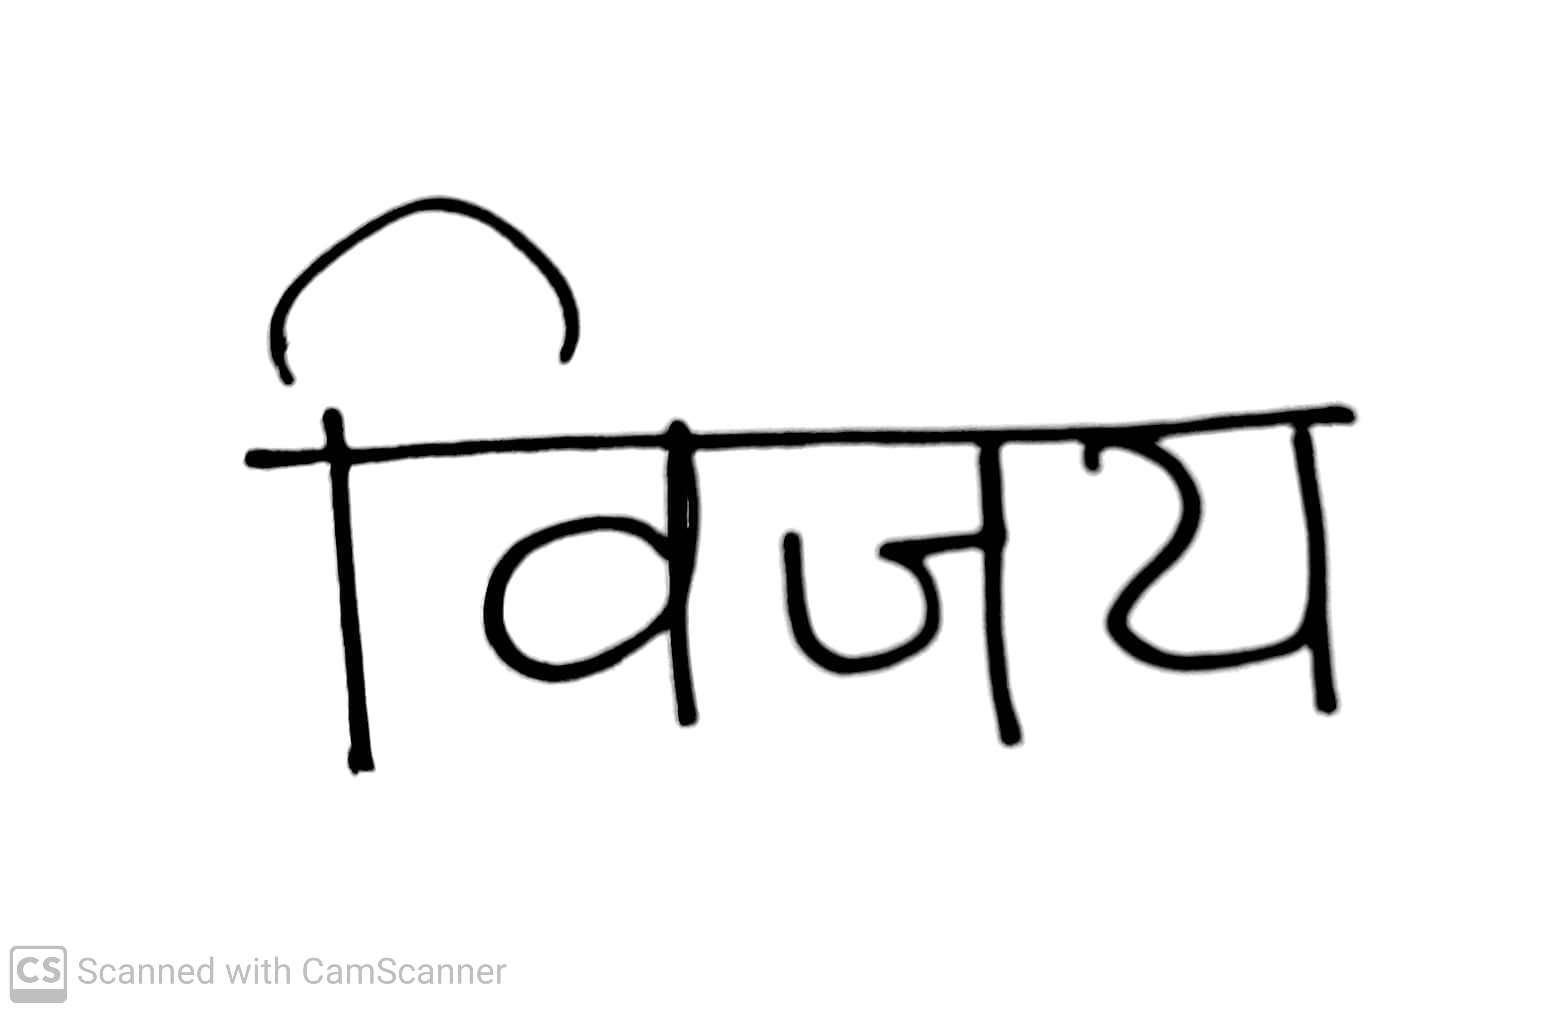 विजय
CS Scanned with CamScanner